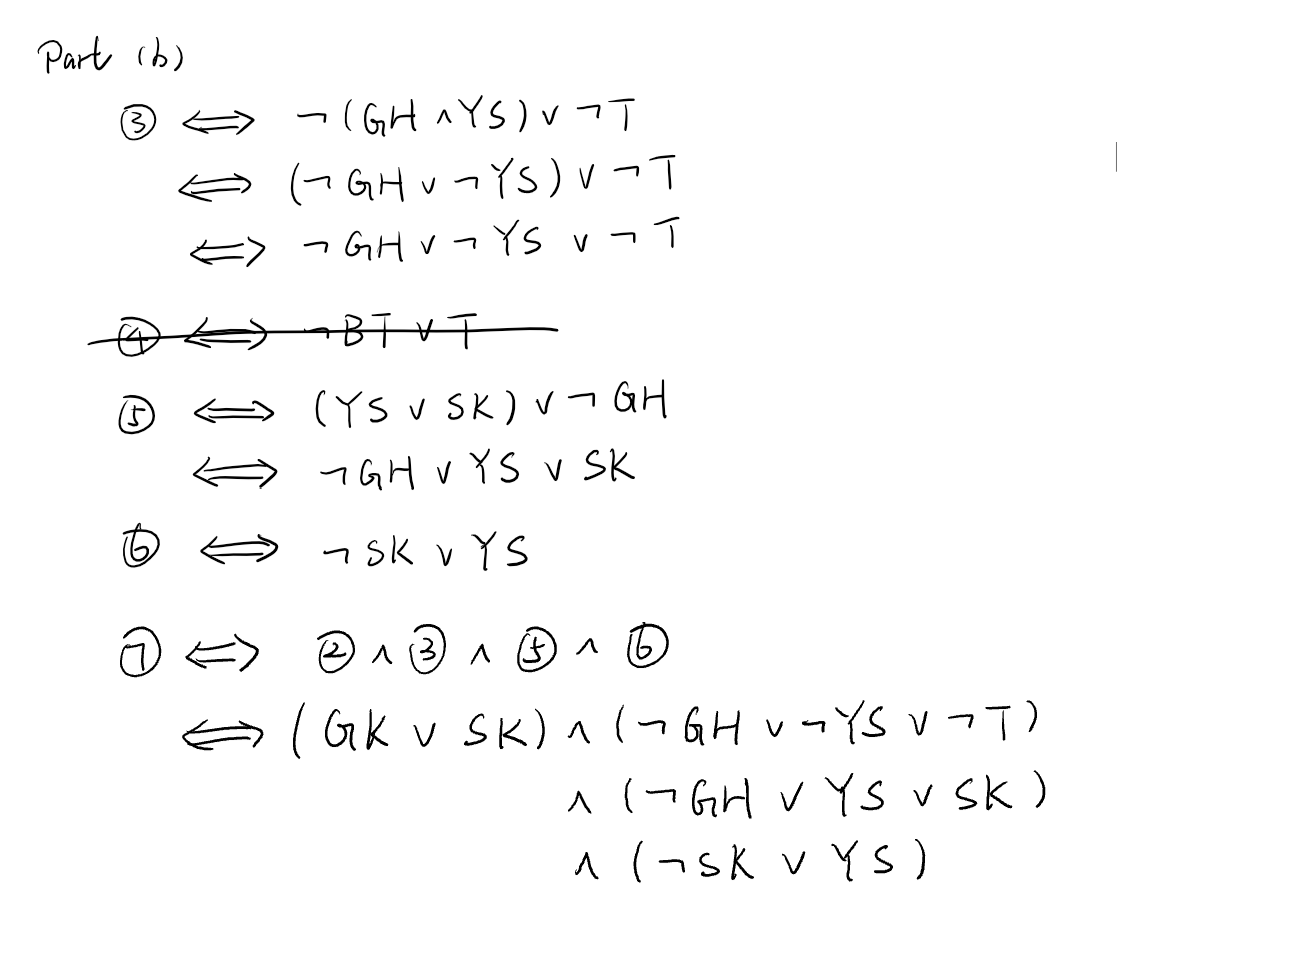 Part (b)
③ ⟺ ¬(GH ∧ YS) ∨ ¬T
⟺ (¬GH ∨ ¬YS) ∨ ¬T
⟺ ¬GH ∨ ¬YS ∨ ¬T
④ ⟺ ¬BT ∨ T
⑤ ⟺ (YS ∨ SK) ∨ ¬GH
⟺ ¬GH ∨ YS ∨ SK
⑥ ⟺ ¬SK ∨ YS
⑦ ⟺ ② ∧ ③ ∧ ⑤ ∧ ⑥
⟺ (GK ∨ SK) ∧ (¬GH ∨ ¬YS ∨ ¬T)
∧ (¬GH ∨ YS ∨ SK)
∧ (¬SK ∨ YS)